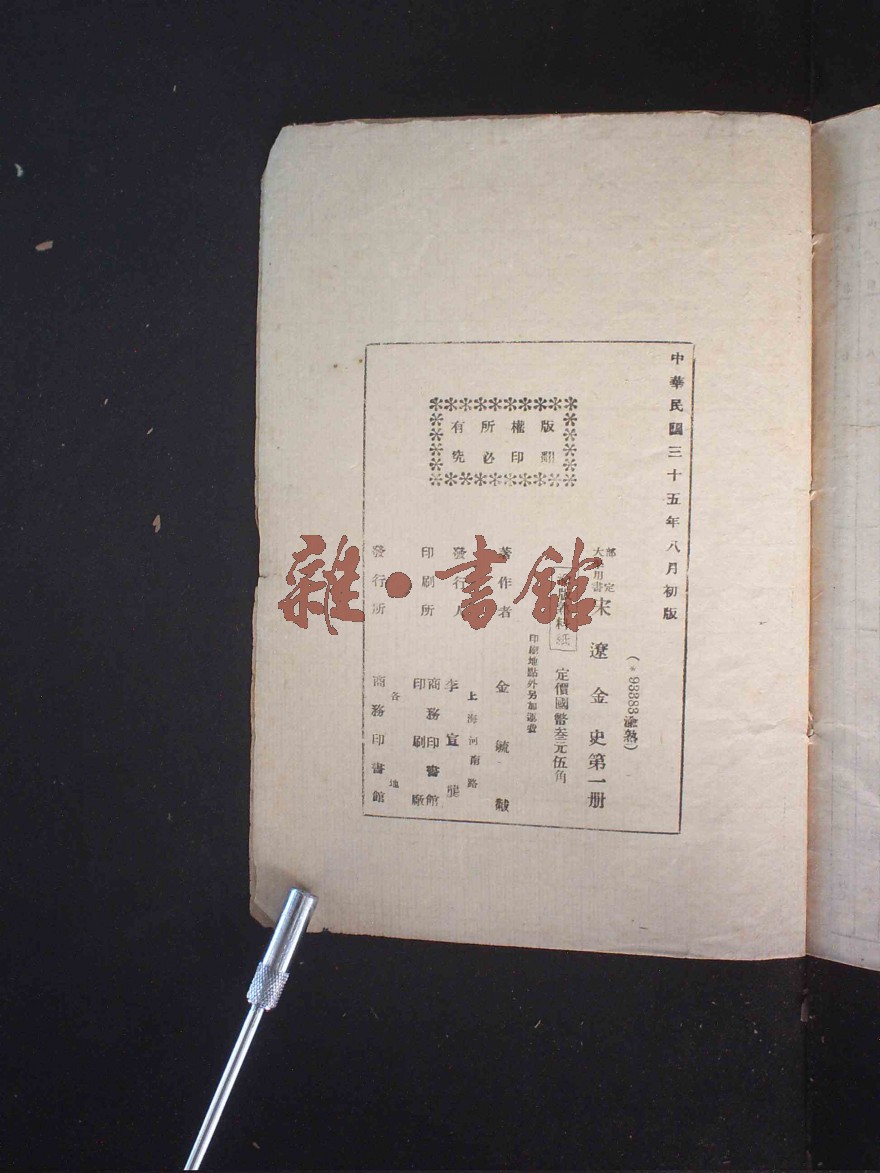 中華民國三十五年八月初版
(*93383滬熱)
部定大學用書
宋遼金史第一册
滬版
料紙
定價國幣叁元伍角
印刷地點外另加運費
版權所有
翻印必究
著作者 金毓黻
發行人 李宣龔
上海河南路
印刷所 商務印書館印刷廠
發行所 商務印書館
各地
雜·書館